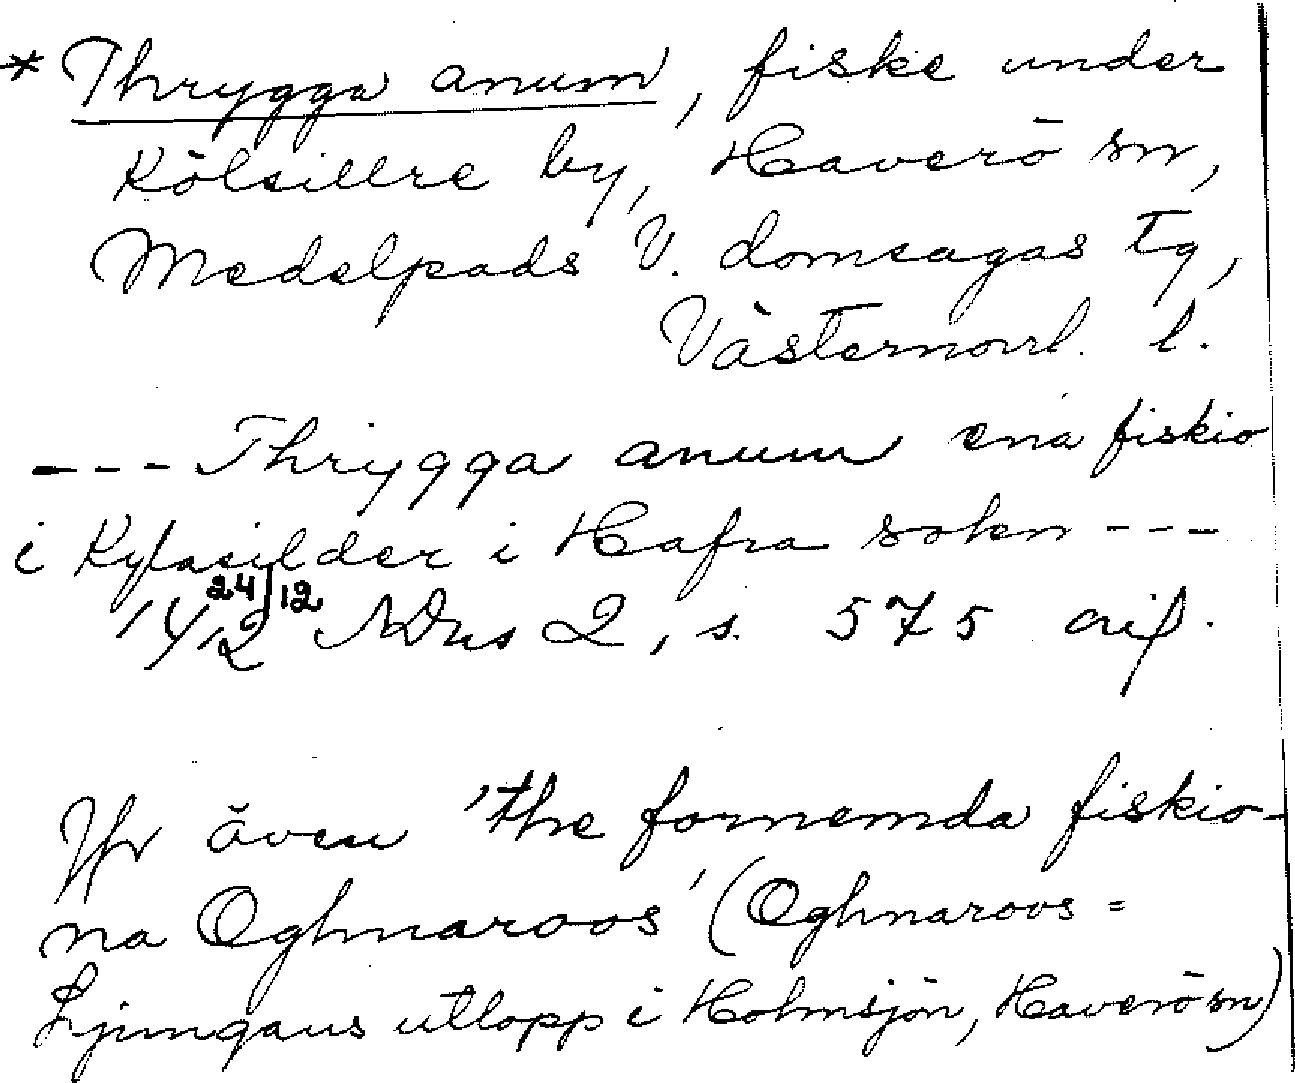 * Thrygga anum, fiske under
Kölsillre by, Haverö sn,
Medelpads V. domsagas tg,
Västernorrl. l.
--- Thrygga anum ena fiskio
i Kylasilder i Hafra sokn ---
24/12 1412 NDus 2, s. 575 orig.
Jfr även 'the fornemda fiskio-
na Oghnaroos' (Oghnaroos =
Ljungans utlopp i Holmsjön, Haverö sn)